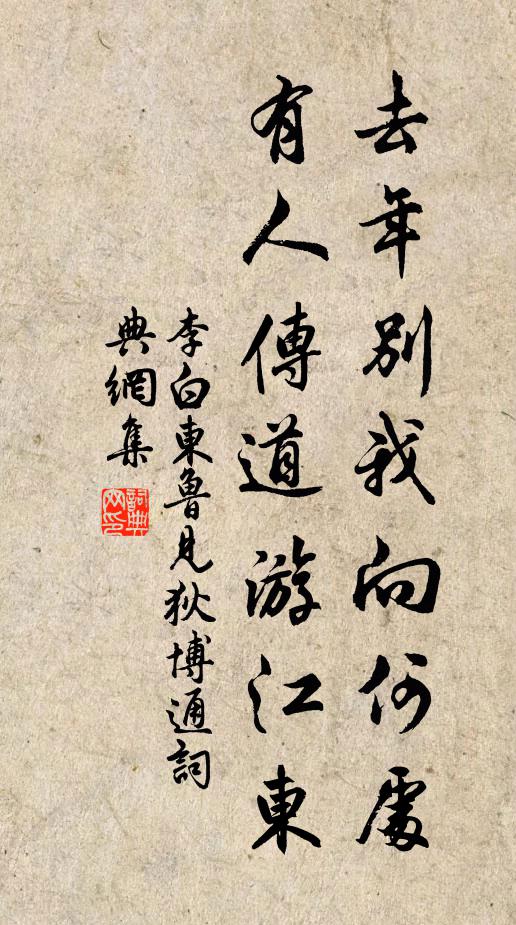 去年別我向何處
有人傳道游江東
李白東魯見狄博通詞
典網集
詞典
网印